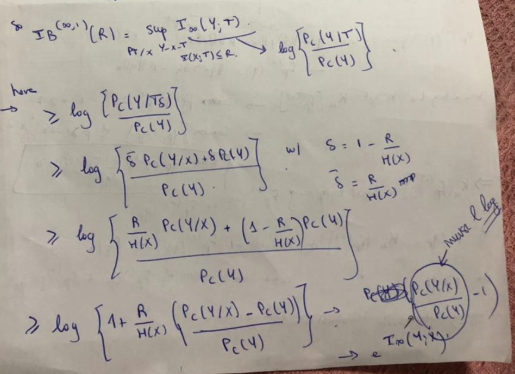 so IB^(∞,1)(R) = sup I∞(Y;T)
P_T/X Y-X-T
I(X;T)≤R → log{Pc(Y/T) / Pc(Y)}.
here
→ ≥ log{Pc(Y/Tδ) / Pc(Y)}
≥ log{δ̄ Pc(Y/X) + δ Pc(Y) / Pc(Y)} w/ δ = 1 - R/H(X)
δ̄ = R/H(X)
≥ log{R/H(X) Pc(Y/X) + (1 - R/H(X)) Pc(Y) / Pc(Y)}
≥ log{1 + R/H(X) (Pc(Y/X) - Pc(Y) / Pc(Y))} → (Pc(Y/X) / Pc(Y) - 1)
log
→ e I∞(Y;X)